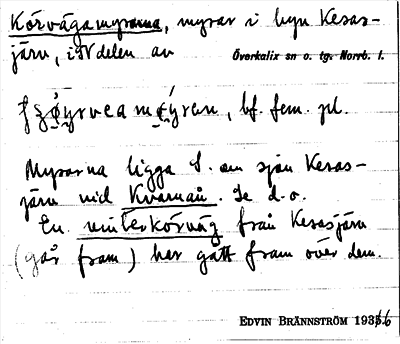 Körvägamyrarna, myrar i byn Kesas-
järv, i SV delen av Överkalix sn o. tg. Norrb. l.
bf. fem. pl.
Myrarna ligga S. om sjön Kesas-
järv vid Kvarnån. Se d. o.
En vinterkörväg från Kesasjärv
(går fram) har gått fram över dem.
EDVIN BRÄNNSTRÖM 1936